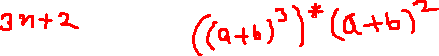 3n+2 ((a+b)^3)^* (a+b)^2